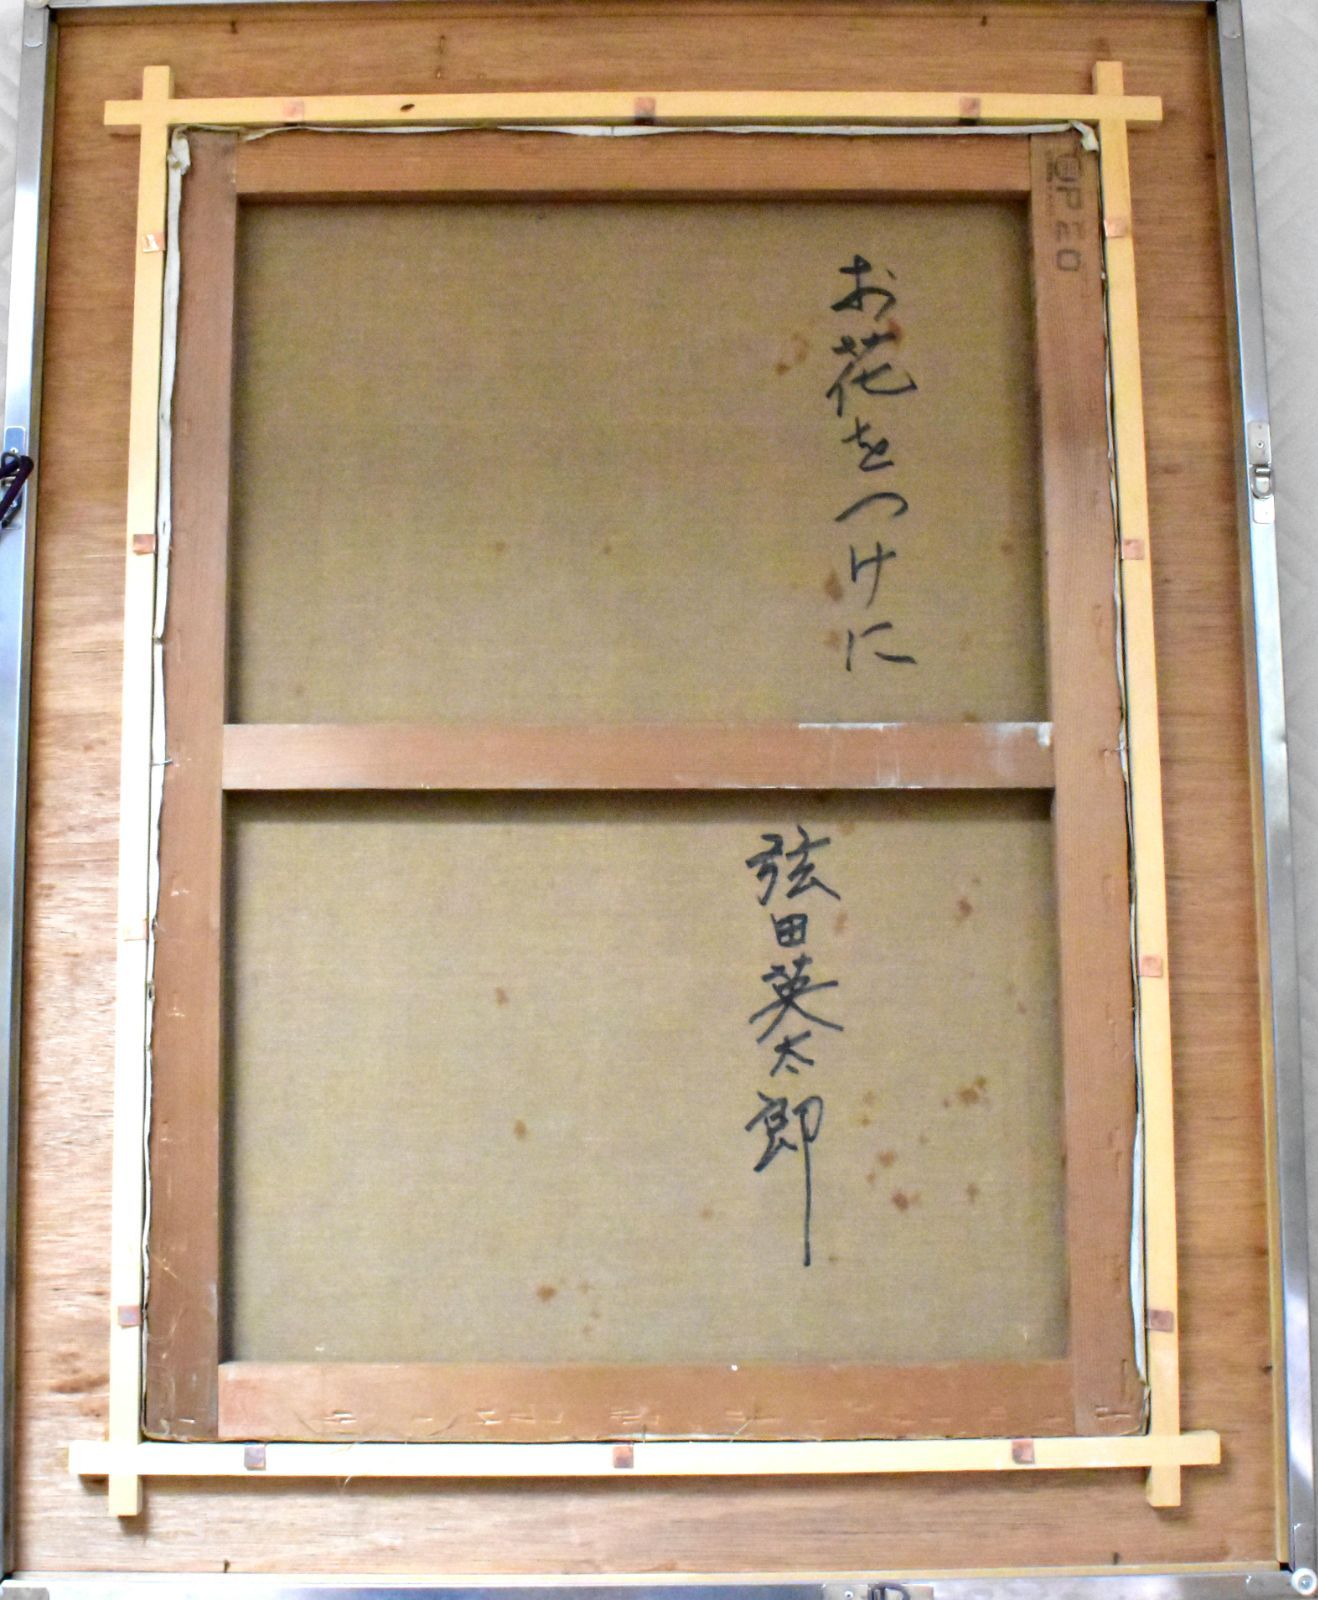 お花をつけに
弦田英太郎
P20